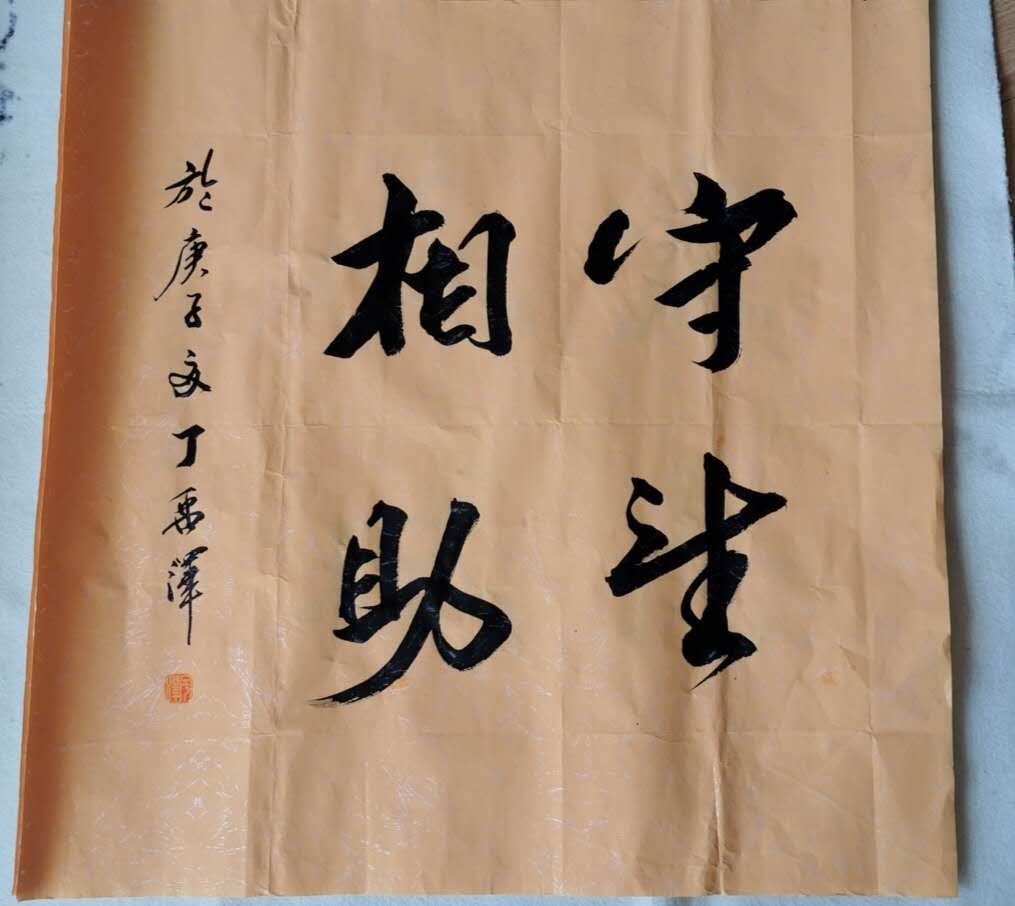 守望
相助
於庚子夏丁禹泽